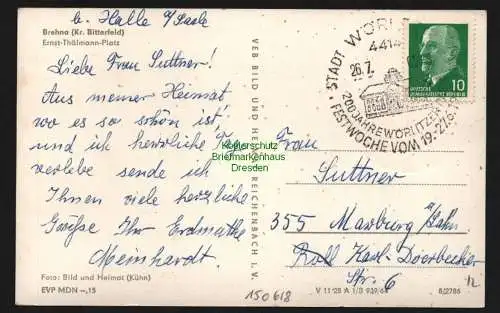 b. Halle a/Saale
Brehna (Kr. Bitterfeld)
Ernst-Thälmann-Platz
Liebe Frau Suttner!
Aus meiner Heimat
wo es so schön ist!
und ich herrliche Tage
verlebe sende ich
Ihnen viele herzliche
Grüße Ihr Erdmuthe
Meinhardt.
Foto: Bild und Heimat (Kühn)
EVP MDN –,15
VEB BILD UND HEIMAT REICHENBACH I. V.
Kollerschutz
Briefmarkenhaus
Dresden
STADT WÖRLITZ
4414
26.7.
200 JAHRE WÖRLITZER
FESTWOCHE VOM 19.-27.8.
10
DEUTSCHE
DEMOKRATISCHE REPUBLIK
Frau
Suttner
355 Marburg a/Lahn
Karl-Doerbecker
Str. 6
V 11 28 A 1/B 939/64
8/2786
150618
12